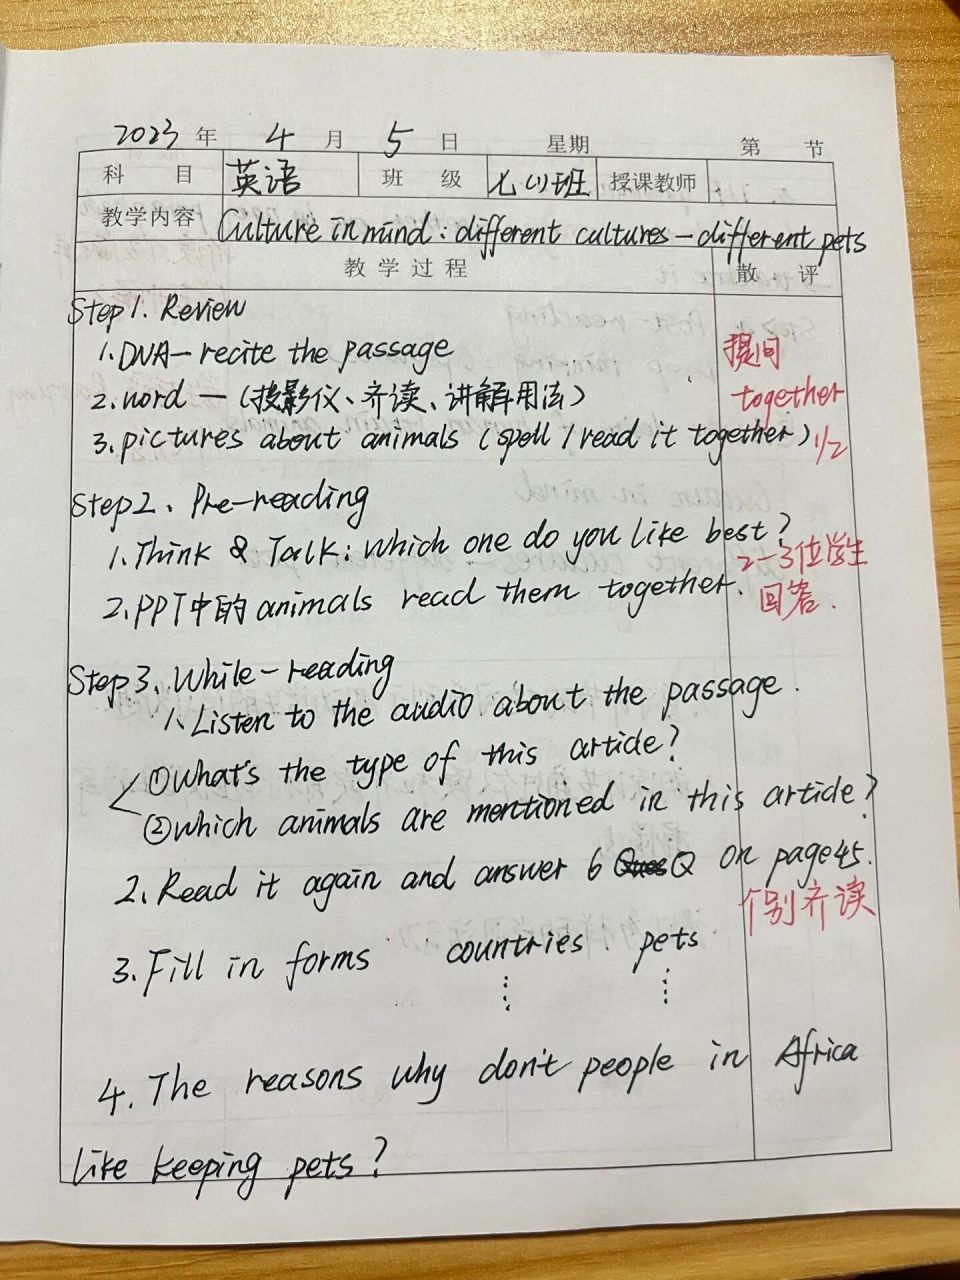 2023 年 4 月 5 日 星期 第 节
科 目 英语 班 级 七(1)班 授课教师
教学内容 Culture in mind: different cultures — different pets
教 学 过 程 散 评
Step 1. Review
1. DNA — recite the passage 提问
2. word — (投影仪、齐读、讲解用法) together
3. pictures about animals (spell / read it together) 1/2
Step 2、Pre-reading
1. Think & Talk: which one do you like best?
2-3位学生
2. PPT中的 animals read them together. 回答.
Step 3、While-reading
1、Listen to the audio about the passage.
①What's the type of this article?
②which animals are mentioned in this article?
2. Read it again and answer 6 Q on page 45.
个别齐读
3. Fill in forms countries pets
4. The reasons why don't people in Africa
like keeping pets?